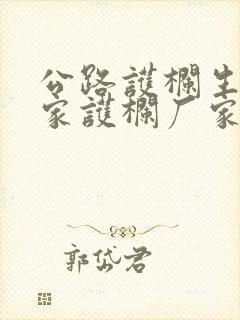 公路護欄生
家護欄厂家
郭岱君